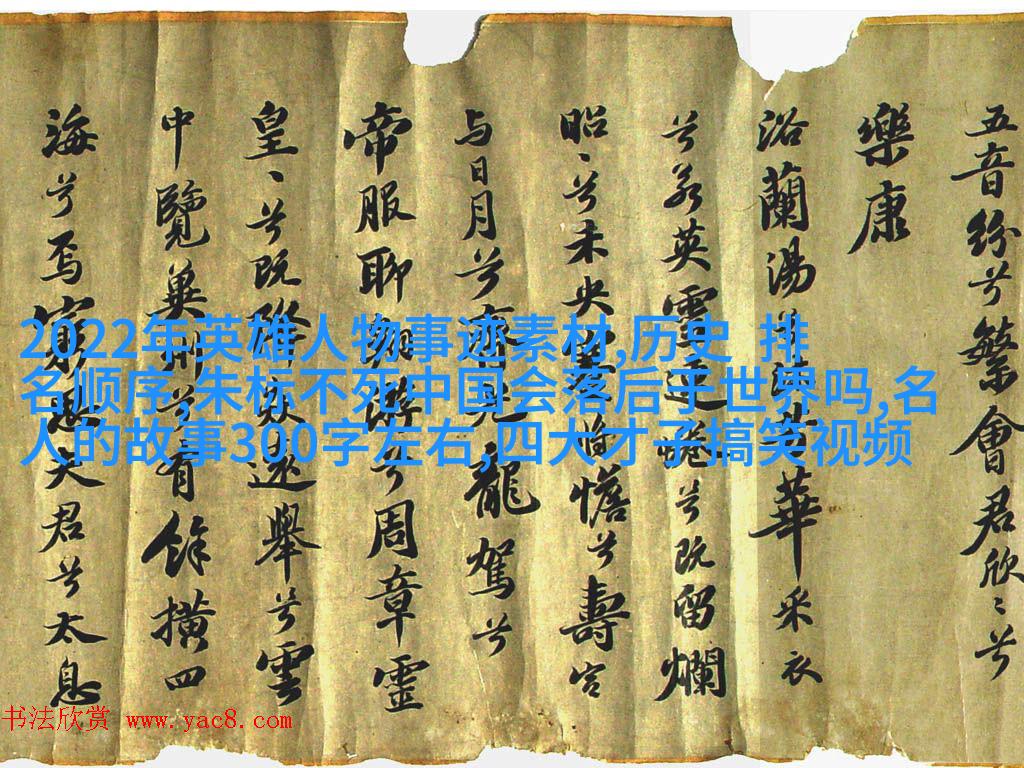 五音紛兮繁會君欣〻兮
樂康
浴蘭湯沐芳華采衣
兮若英靈連蜷兮既留爛
昭〻兮未央蹇將憺兮壽宮
与日月兮齊光龍駕兮
帝服聊翱遊兮周章靈
皇〻兮既降猋遠舉兮雲
中覽冀州兮有餘橫四
海兮焉窮思夫君兮太息
2022年英雄人物事迹素材,历史 排
名顺序,朱标不死中国会落后于世界吗,名
人的故事300字左右,四大才子搞笑视频
书法欣赏 www.yac8.com